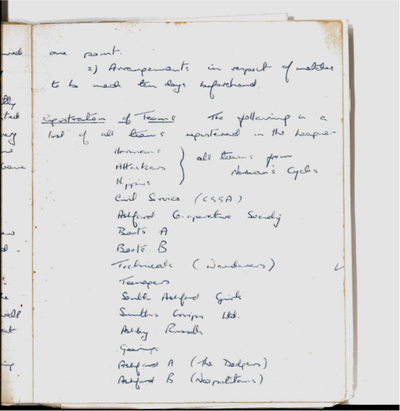 one point.
2) Arrangements in respect of matches
to be made ten days beforehand.
Registration of Teams The following is a
list of all teams registered in the league:-
Normans
Attackers } all teams from
Norman's Cycles
Civil Service (CSSA)
Ashford Co-operative Society
Beats A
Beats B
Technicals (Wanderers)
Teenagers
South Ashford Girls
Smiths Crisps Ltd.
Ashby Rounds
Ashford A (The Dodgers)
Ashford B (Neopolitans)